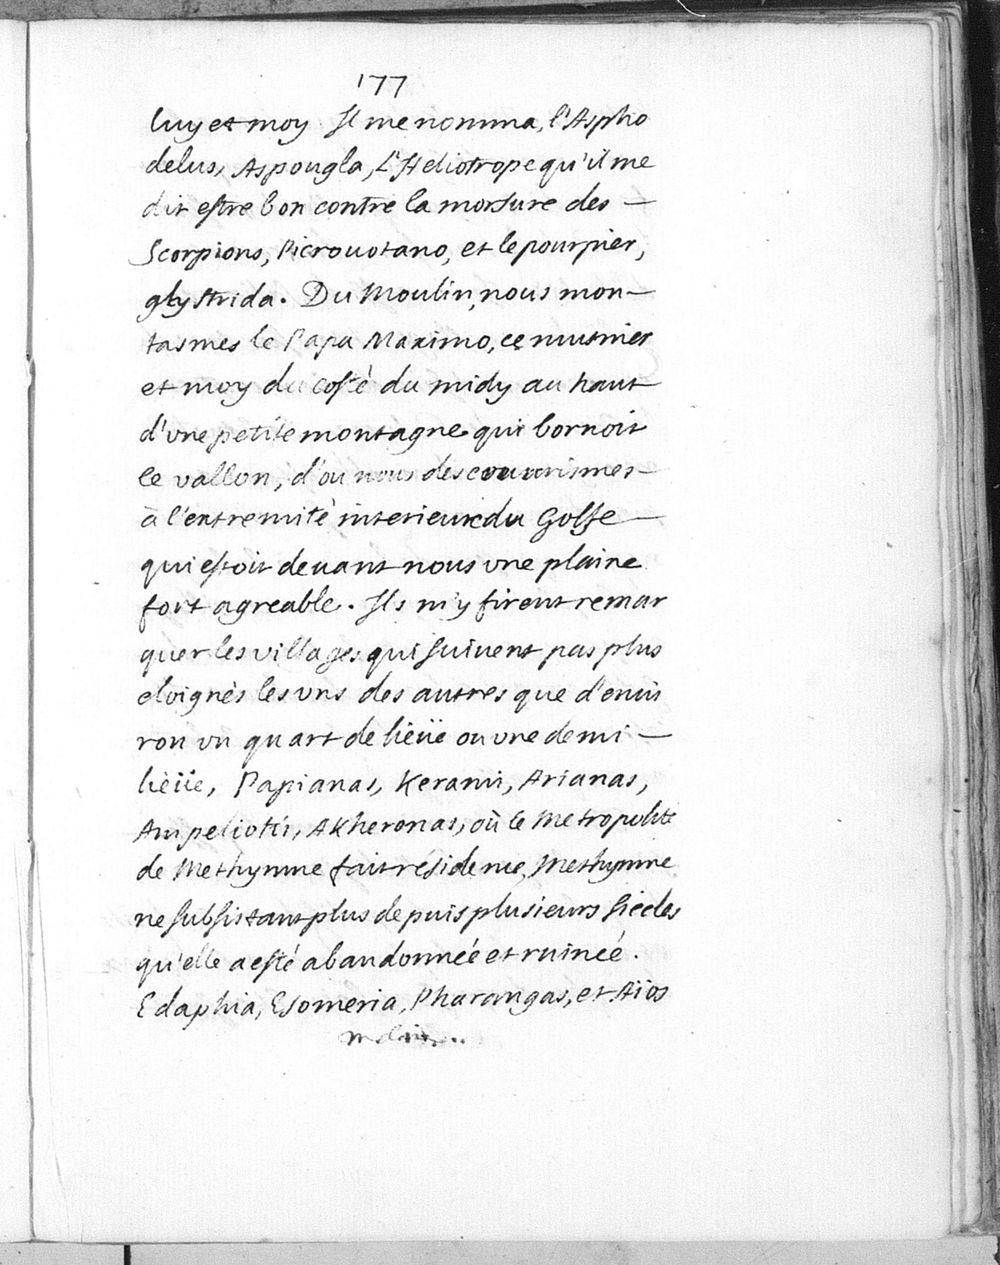 177
luy et moy Il me nomma, l'Aspho
delus, Aspougla, L'Heliotrope qu'il me
dit estre bon contre la morsure des —
Scorpions, Picrouotano, et le pourpier,
glystrida. Du Moulin, nous mon—
tasmes le Papa Maximo, ce musnier
et moy du costé du midy au haut
d'vne petite montagne qui bornoit
le vallon, d'ou nous descouurismes —
à l'extremité interieure du Golfe —
qui estoit deuant nous vne plaine
fort agreable. Ils m'y firent remar
quer les villages qui suiuent pas plus
eloignés les vns des autres que d'enui
ron vn quart de lieüe ou vne demi —
lieüe, Papianas, Kerami, Arianas,
Ampeliotú, Akheronas, où le Metropolite
de Methymne fait résidence, Methymne
ne subsistant plus depuis plusieurs siecles
qu'elle a esté abandonnée et ruinée.
Edaphia, Esomeria, Pharangas, et Aïos